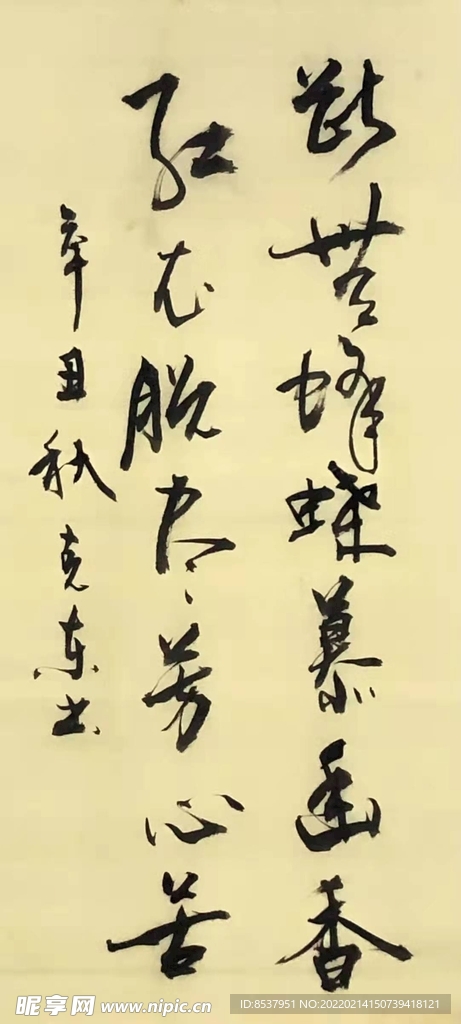 断无蜂蝶慕幽香
红衣脱尽芳心苦
辛丑秋克东书
昵享网 www.nipic.cn
ID:8537951 NO:20220214150739418121